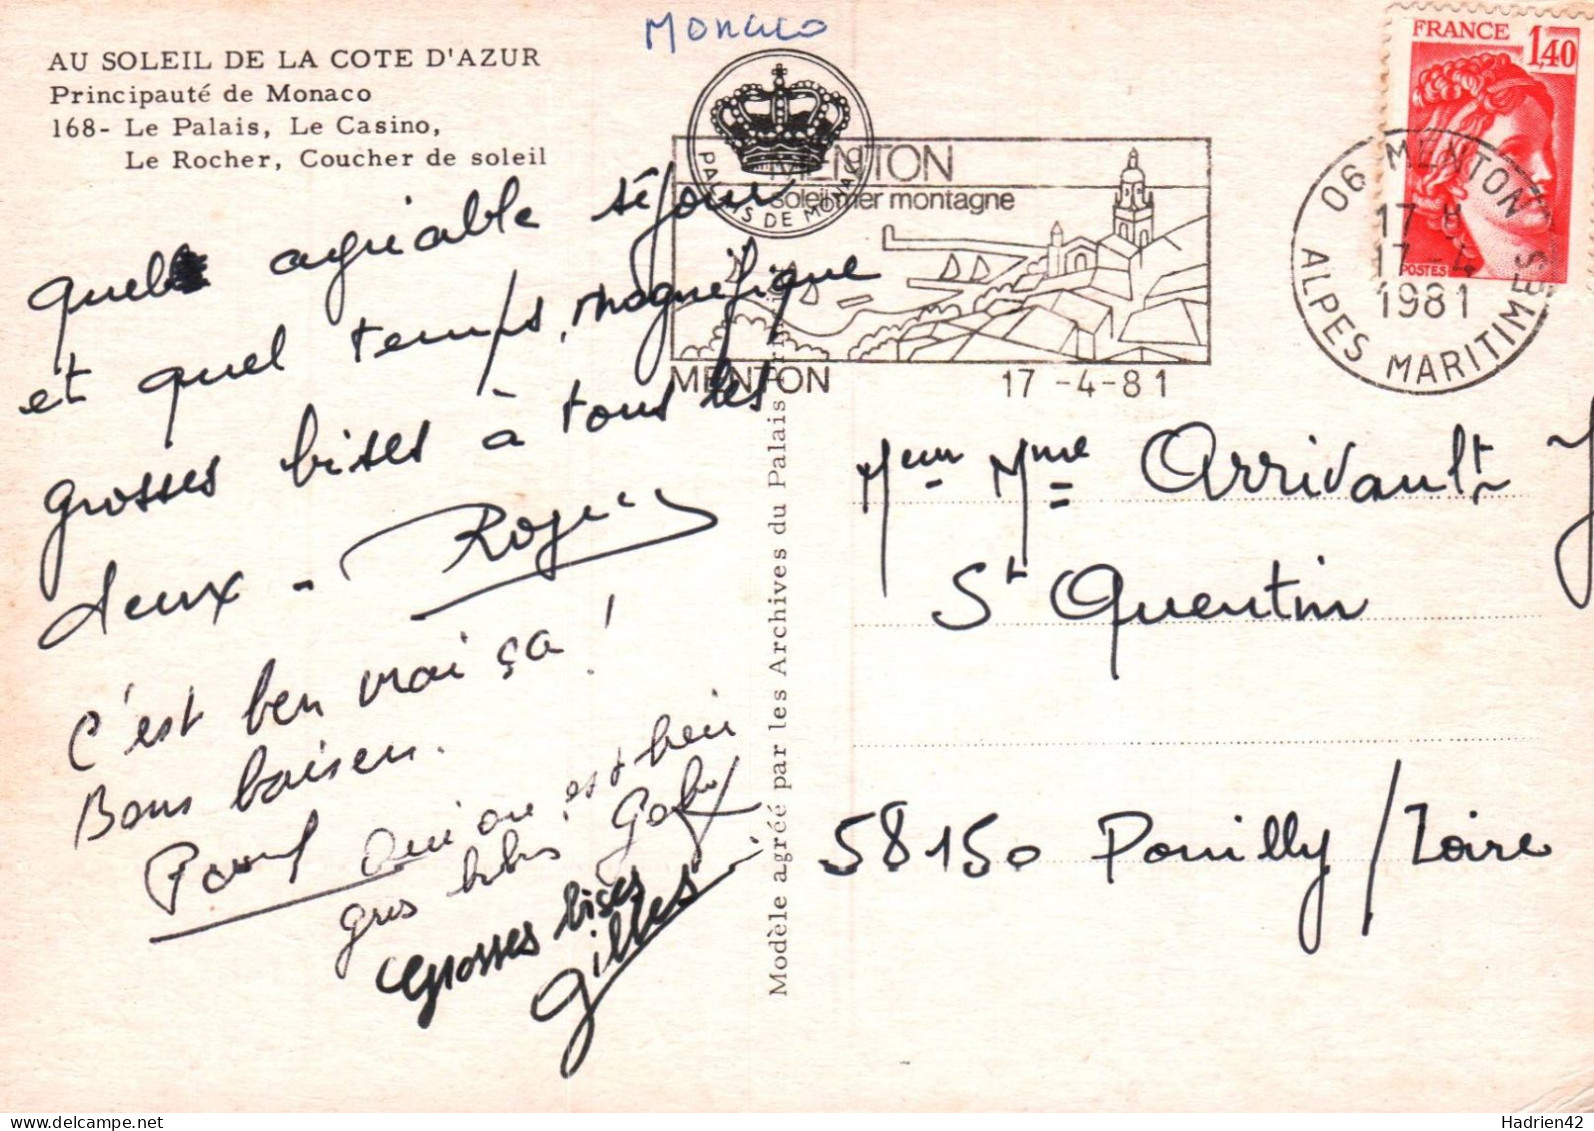 Monaco
AU SOLEIL DE LA COTE D'AZUR
Principauté de Monaco
168- Le Palais, Le Casino,
Le Rocher, Coucher de soleil
PALAIS DE MONACO
MENTON
soleil mer montagne
MENTON 17 -4-81
FRANCE 1,40
POSTES
06 MENTON
17 H
17 -4
1981
ALPES MARITIMES
Quel agréable séjour
et quel temps magnifique
grosses bises à tous les
deux - Roger
C'est ben vrai ça !
Bons baisers.
qu'on est bien
gros bibis Gaby
Grosses bises
Gilles
Modèle agréé par les Archives du Palais
Mr et Mme Arrivault
St Quentin
58150 Pouilly / Loire
Hadrien42